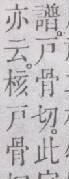 譜。戸骨切。此
亦云。核。戸骨